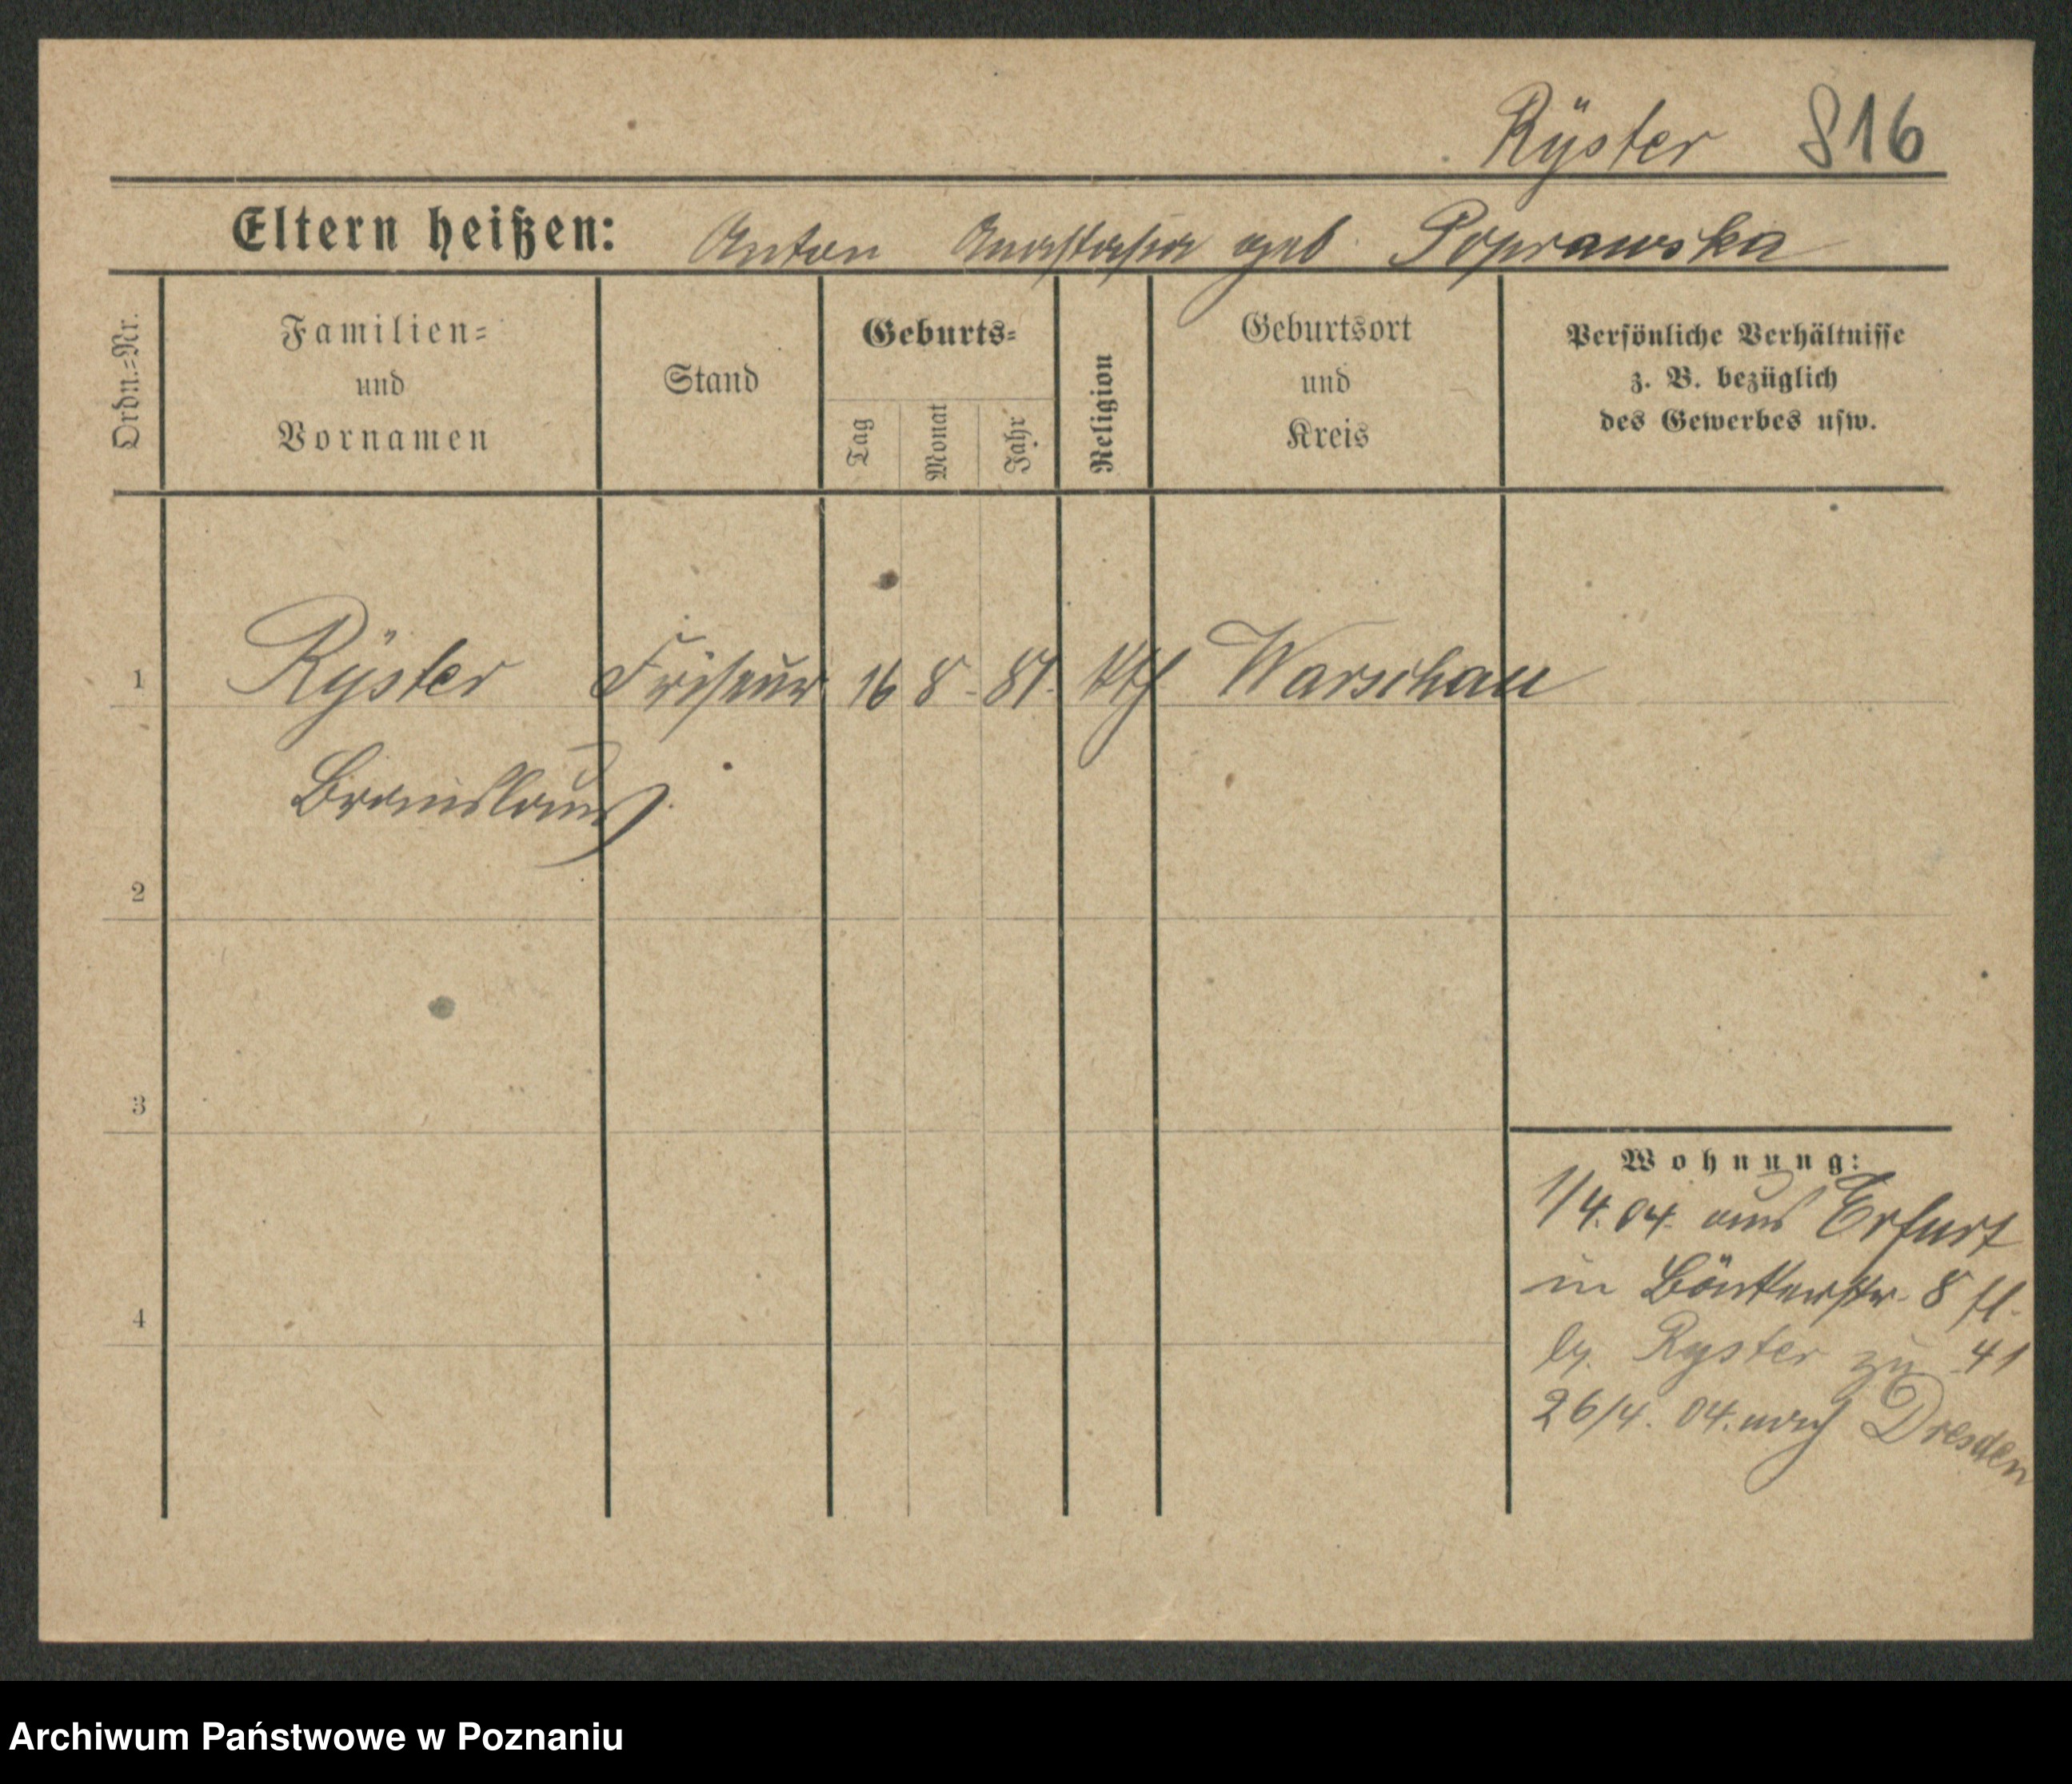 Rÿster 816
Eltern heißen: Anton Anastasia geb. Poprawska
Ordn.=Nr.
Familien=
und
Vornamen
Stand
Geburts=
Tag
Monat
Jahr
Religion
Geburtsort
und
Kreis
Persönliche Verhältnisse
z. B. bezüglich
des Gewerbes usw.
1 Rÿster Friseur 16 8. 81. kth Warschau
Bronislaus
2
3
4
Wohnung:
1/4. 04. aus Erfurt
in 8
Ryster zu 41
26/4. 04. nach Dresden
Archiwum Państwowe w Poznaniu